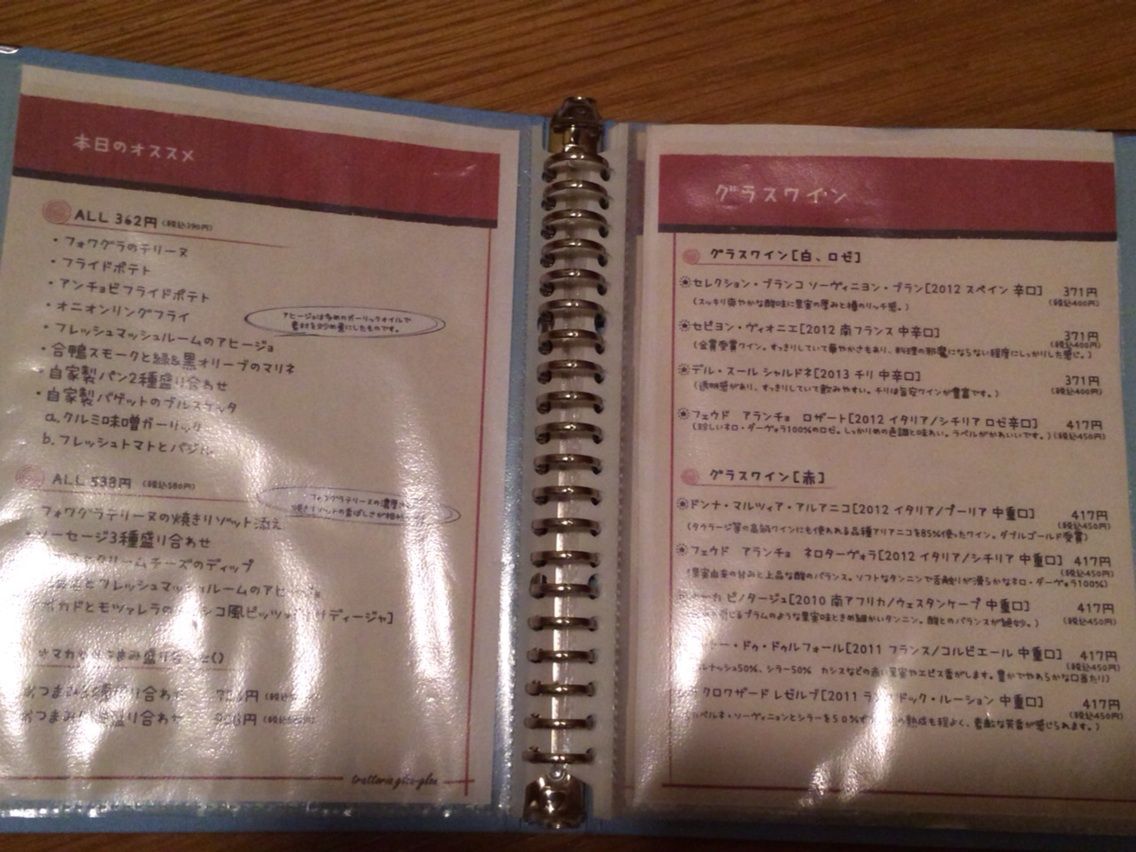 本日のオススメ
ALL 362円 (税込390円)
・フォワグラのテリーヌ
・フライドポテト
・アンチョビフライドポテト
・オニオンリングフライ
・フレッシュマッシュルームのアヒージョ
アヒージョは多めのガーリックオイルで
素材を炒め煮にしたものです。
・合鴨スモークと緑&黒オリーブのマリネ
・自家製パン2種盛り合わせ
・自家製バゲットのブルスケッタ
a.クルミ味噌ガーリック
b.フレッシュトマトとバジル
ALL 538円 (税込580円)
フォワグラテリーヌの濃厚
焼きリゾットの香ばしさが
フォワグラテリーヌの焼きリゾット添え
ソーセージ3種盛り合わせ
クリームチーズのディップ
とフレッシュマッシュルームのアヒージョ
カドとモツァレラの
盛り合わせ
おつまみ 盛り合わせ
おつまみ 盛り合わせ
trattoria gizo-gizo
グラスワイン
グラスワイン[白、ロゼ]
セレクション・ブランコ ソーヴィニヨン・ブラン[2012 スペイン 辛口] 371円
(スッキリ爽やかな酸味に果実の厚みと樽のリッチ感。) (税込400円)
セピヨン・ヴィオニエ[2012 南フランス 中辛口] 371円
(金賞受賞ワイン。すっきりしていて華やかさもあり、料理の邪魔にならない程度にしっかりした感じ。) (税込400円)
デル・スール シャルドネ[2013 チリ 中辛口] 371円
(透明感があり、すっきりしていて飲みやすい。チリは旨安ワインが豊富です。) (税込400円)
フェウド アランチョ ロザート[2012 イタリア/シチリア ロゼ辛口] 417円
(珍しいネロ・ダーヴォラ100%のロゼ。しっかりめの色調と味わい。ラベルがかわいいです。) (税込450円)
グラスワイン[赤]
ドンナ・マルツィア・アルアニコ[2012 イタリア/プーリア 中重口] 417円
(タウラージ等の高級ワインにも使われる品種アリアニコを85%使ったワイン。ダブルゴールド受賞) (税込450円)
フェウド アランチョ ネロターヴォラ[2012 イタリア/シチリア 中重口] 417円
(果実由来の甘みと上品な酸のバランス。ソフトなタンニンで舌触りが滑らかなネロ・ダーヴォラ100%) (税込450円)
ピノタージュ[2010 南アフリカ/ウェスタンケープ 中重口] 417円
感じるプラムのような果実味ときめ細かいタンニン。酸とのバランスが絶妙。) (税込450円)
ドゥ・ドゥルフォール[2011 フランス/コルビエール 中重口] 417円
ルナッシュ50%、シラー50% カシスなどの赤い果実やスパイス香がします。豊かでやわらかな口当たり) (税込450円)
クロワザード レゼルブ[2011 ラングドック・ルーション 中重口] 417円
カベルネ・ソーヴィニョンとシラーを50%ず の熟成も程よく、素敵な芳香が感じられます。) (税込450円)